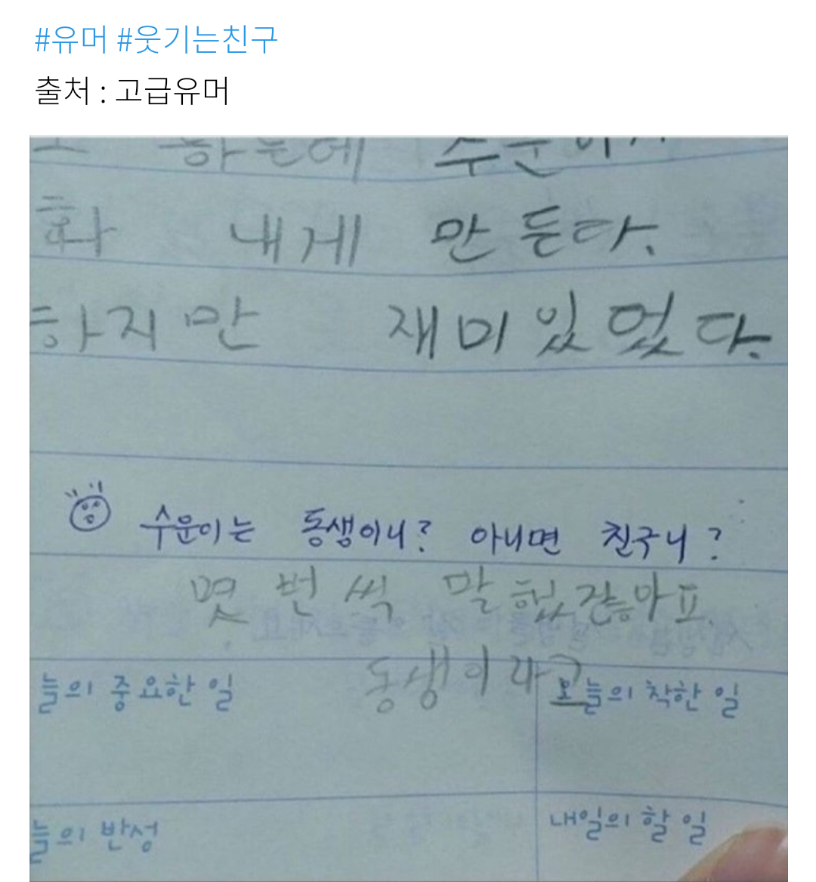 #유머 #웃기는친구
출처 : 고급유머
하는데 수운이가
화 내게 만든다.
하지만 재미있었다.
수운이는 동생이니? 아니면 친구니?
몇 번 씩 말 했잖아요.
동생이라고
늘의 중요한 일 오늘의 착한 일
늘의 반성 내일의 할 일